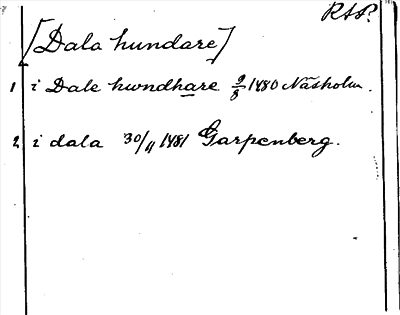 RAP?
[Dala hundare]
1 i Dale hwndhare 2/8 1480 Näsholm.
2 i dala 30/11 1481 Garpenberg.